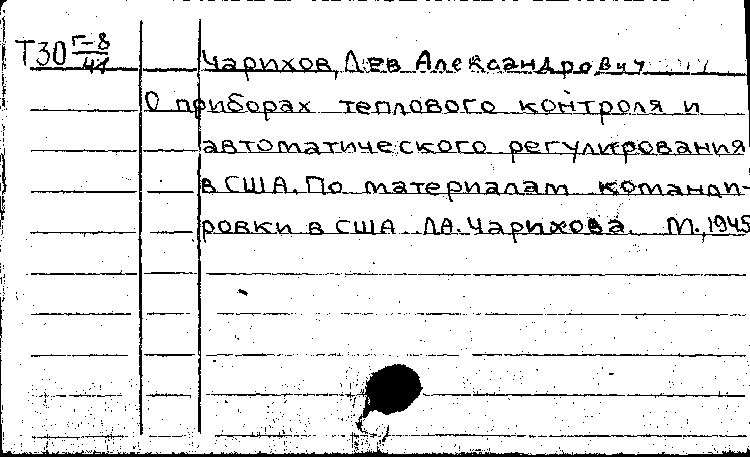 Т30 Г-8/41
Чарихов, Лев Александрович
О приборах теплового контроля и
автоматического регулирования
в США. По материалам команди-
ровки в США Л.А. Чарихова. М., 1945